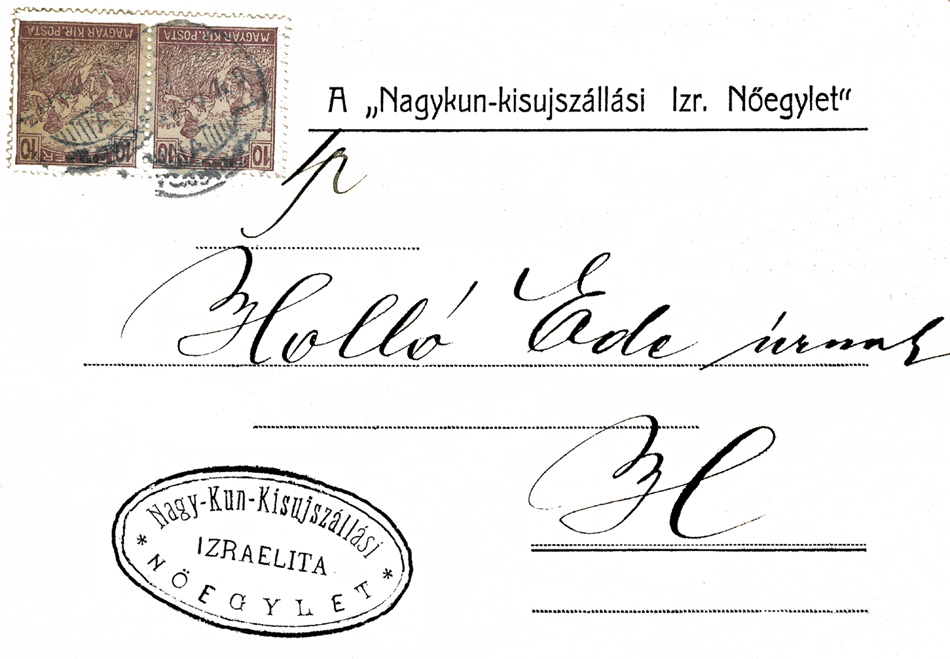 MAGYAR KIR. POSTA MAGYAR KIR. POSTA
10 10 10 10
A „Nagykun-kisujszállási Izr. Nőegylet“
Holló Ede úrnak
Nagy-Kun-Kisujszállási
IZRAELITA
* NŐEGYLET *